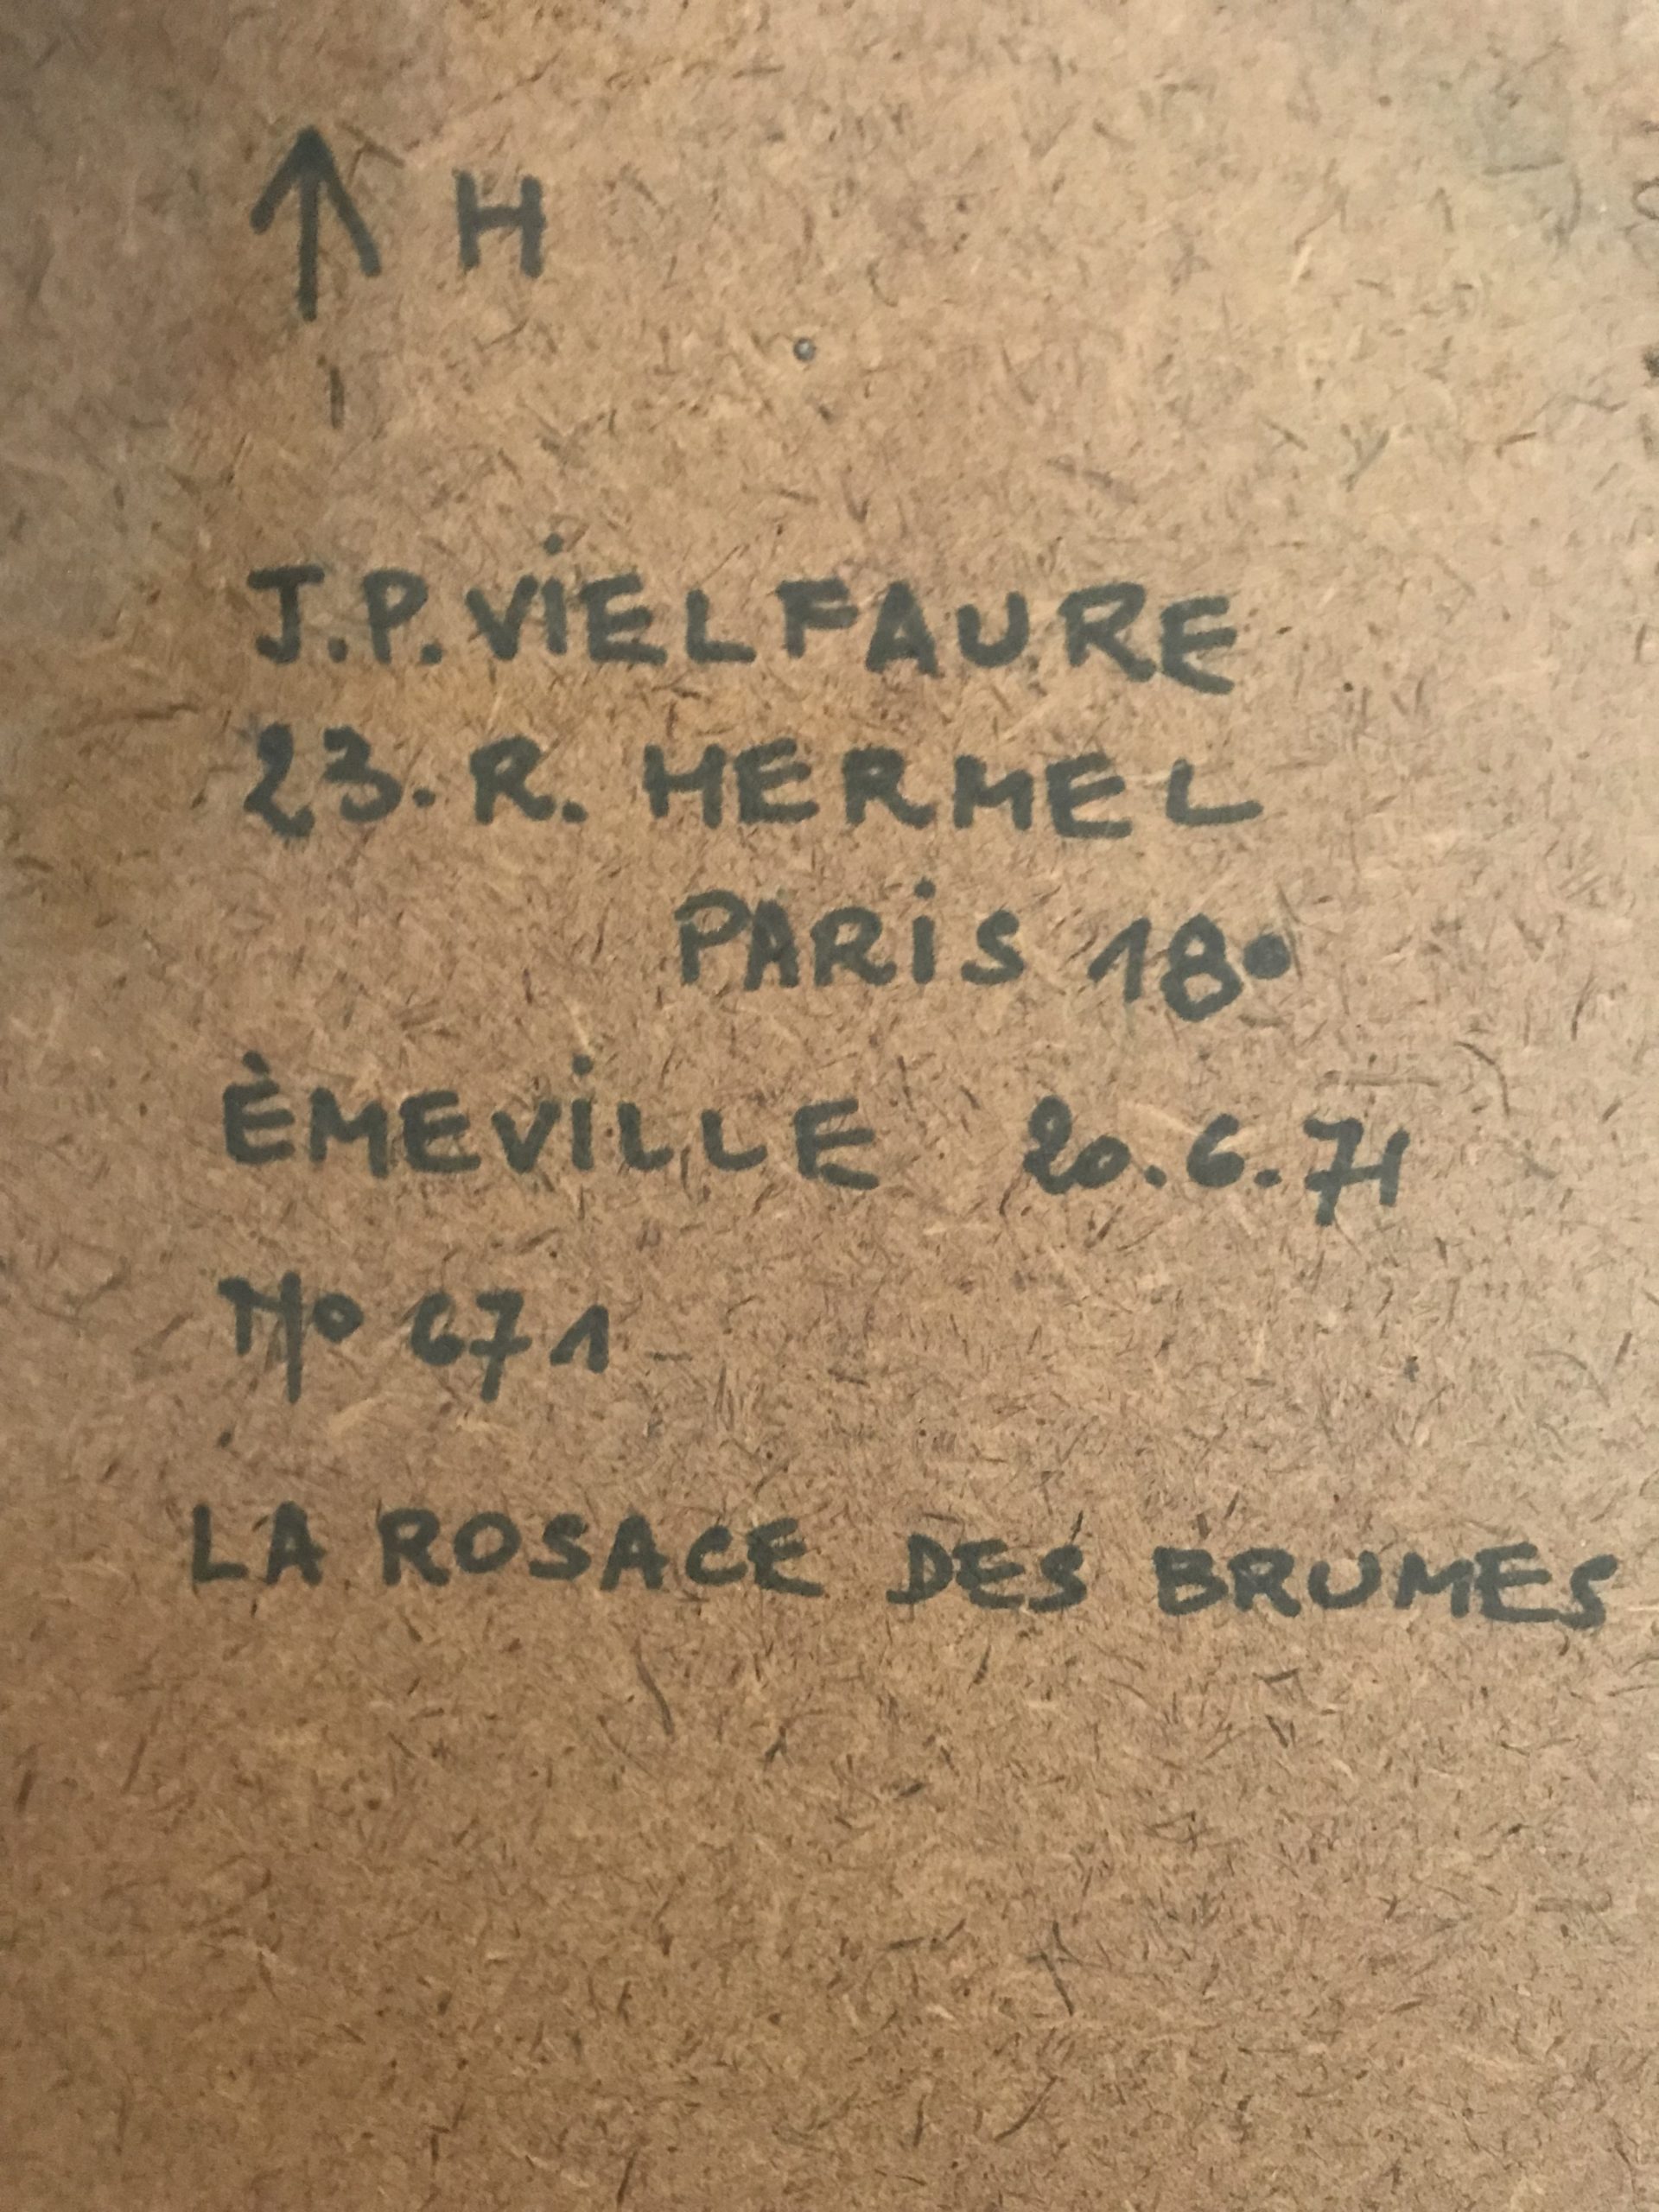 ↑ H
J.P. VIELFAURE
23. R. HERMEL
PARIS 18•
ÉMEVILLE 20.6.71
No 671
LA ROSACE DES BRUMES